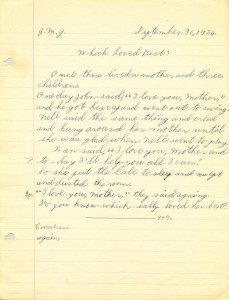 J.M.J. September 30, 1924.
Which Loved Best?
Once there lived a mother and three
children.
One day John said, "I love you, mother,"
and he got his cap and went out to swing.
Nell said the same thing and cried
and hung around her mother until
she was glad when Nell went to play.
Fan said, "I love you, mother and
to-day I'll help you all I can."
So she put the babe to sleep and swept
and dusted the room.
Sp. "I love you, mother," they said again.
Do you know which really loved her best?
90%
Corrections
again